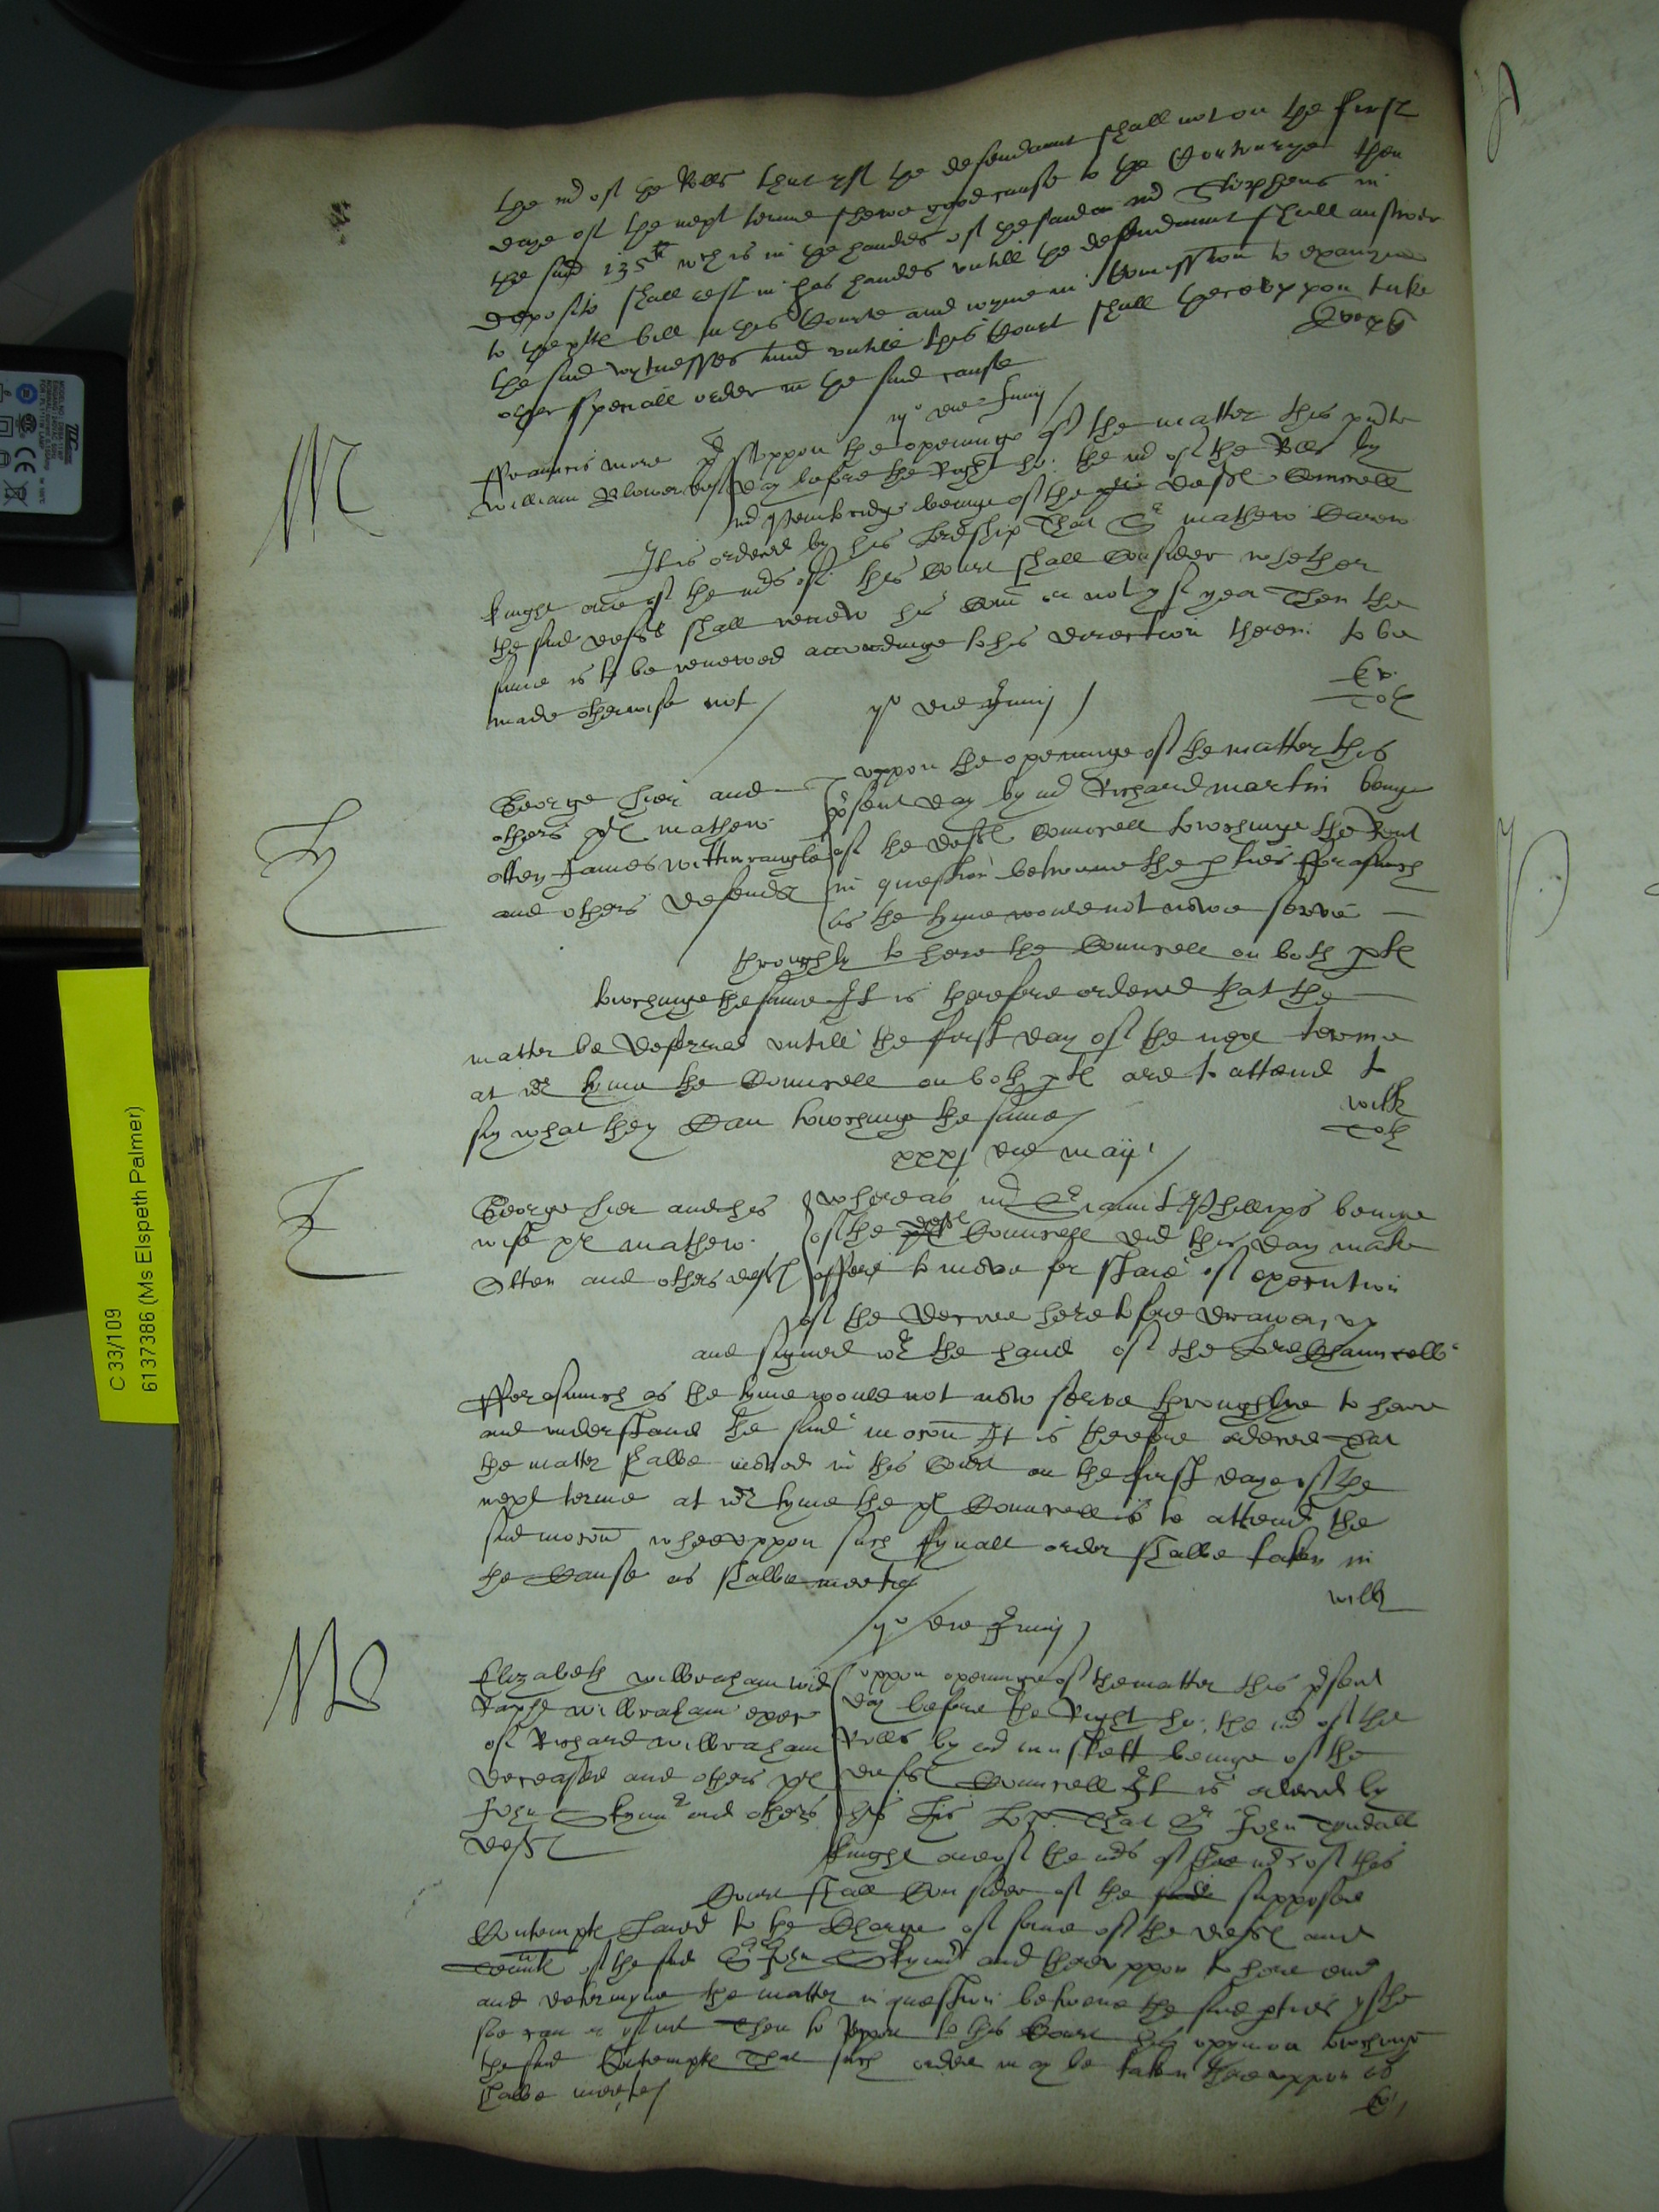 the mr of the Rolls that yf the defendaunt shall not on the first
daye of the next terme shewe good cause to the Contrarye then
the said 135li wch is in the handes of the said mr Stephens in
deposito shall rest in his handes untill the defendaunt shall answer
to the plts bill in this Courte and ioyne in Comission to examyne
the said wytnesses and untill this Court shall thereuppon take
other speciall order in the said cause
iijo die Junij
M
ffrauncis more pl
William deft
uppon the openinge of the matter this pnte
day before the Right ho: the mr of the Rolls by
mr Pembridge beinge of the deftes Councell
It is ordered by his Lordship That Sr mathew Carew
knight one of the mrs of this Court shall Consider whether
the said deft shall renew his Com or not yf yea Then the
same is to be renewed accordinge to his direction therein to be
made otherwise not
ijo die Junij
George hier and
others pls mathew
otten James wittewrangle
and others defendts
uppon the openinge of the matter this
psent day by mr Richard martin beinge
of the deftes Councell towchinge the Rent
in question betweene the pties fforasmuch
as the tyme would not nowe serve
throughly to here the Councell on both ptes
towchinge the same It is therefore ordered that the
matter be deferred untill the first day of the next terme
at wch tyme the Councell on both ptes are to attend to
say what they Can towchinge the same
xxxj die maij
George hier and his
wife pls mathew
Otten and others defts
whereas mr Phillips beinge
of the pls deftes Councell did this day make
offer to move for staie of execution
of the decree heretofore drawen up
and signed wth the hand of the Lord Chauncellr
fforasmuch as the tyme would not now serve throughlie to heare
and understand the said mocon It is therefore ordered That
the matter shalbe moved in this Court on the first daye of the
next terme at wch tyme the pls Councell is to attend the
said mocon whereuppon such fynall order shalbe taken in
the Cause as shalbe meete
ijo die Junij
Elizabeth Wilbraham wid
Raphe wilbraham exer
of Richard wilbraham
deceased and others pls
John and others
defts
uppon openinge of the matter this psent
day before the Right ho: the mr of the
Rolls by mr muskett beinge of the
deftes Councell It is ordered by
his Lop That Sr John Tyndall
knight one of the mrs of the mrs of this
Court shall Consider of the said supposed
Contempte laied to the Charge of some of the defts and
of the said Sr John and thereuppon to here end
and determyne the matter in question betweene the said pties yf he
soe can or yf not Then to Report to this Court his opynion towchinge
the said Contempte That such order may be taken thereuppon as
shalbe meete
C 33/109
6137386 (Ms Elspeth Palmer)